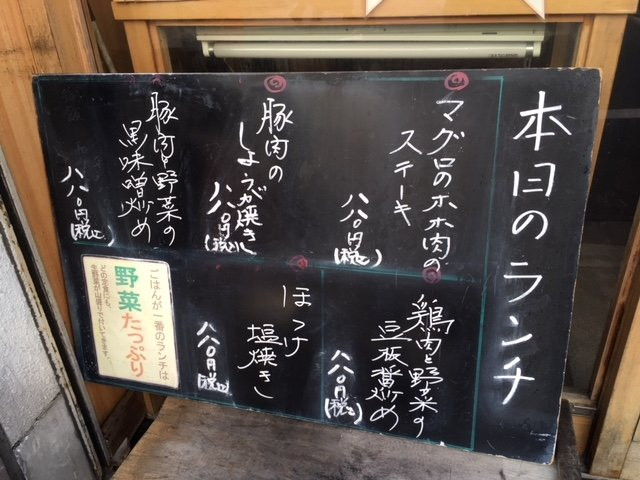 本日のランチ
マグロのホホ肉の
ステーキ
八八〇円(税込)
豚肉の
しょうが焼き
八八〇円(税込)
豚肉と野菜の
黒味噌炒め
八八〇円(税込)
鶏肉と野菜の
豆板醤炒め
八八〇円(税込)
ほっけ
塩焼き
八八〇円(税込)
ごはんが一番のランチは
野菜たっぷり
どの定食にも、
生野菜が山盛りでついてきます。